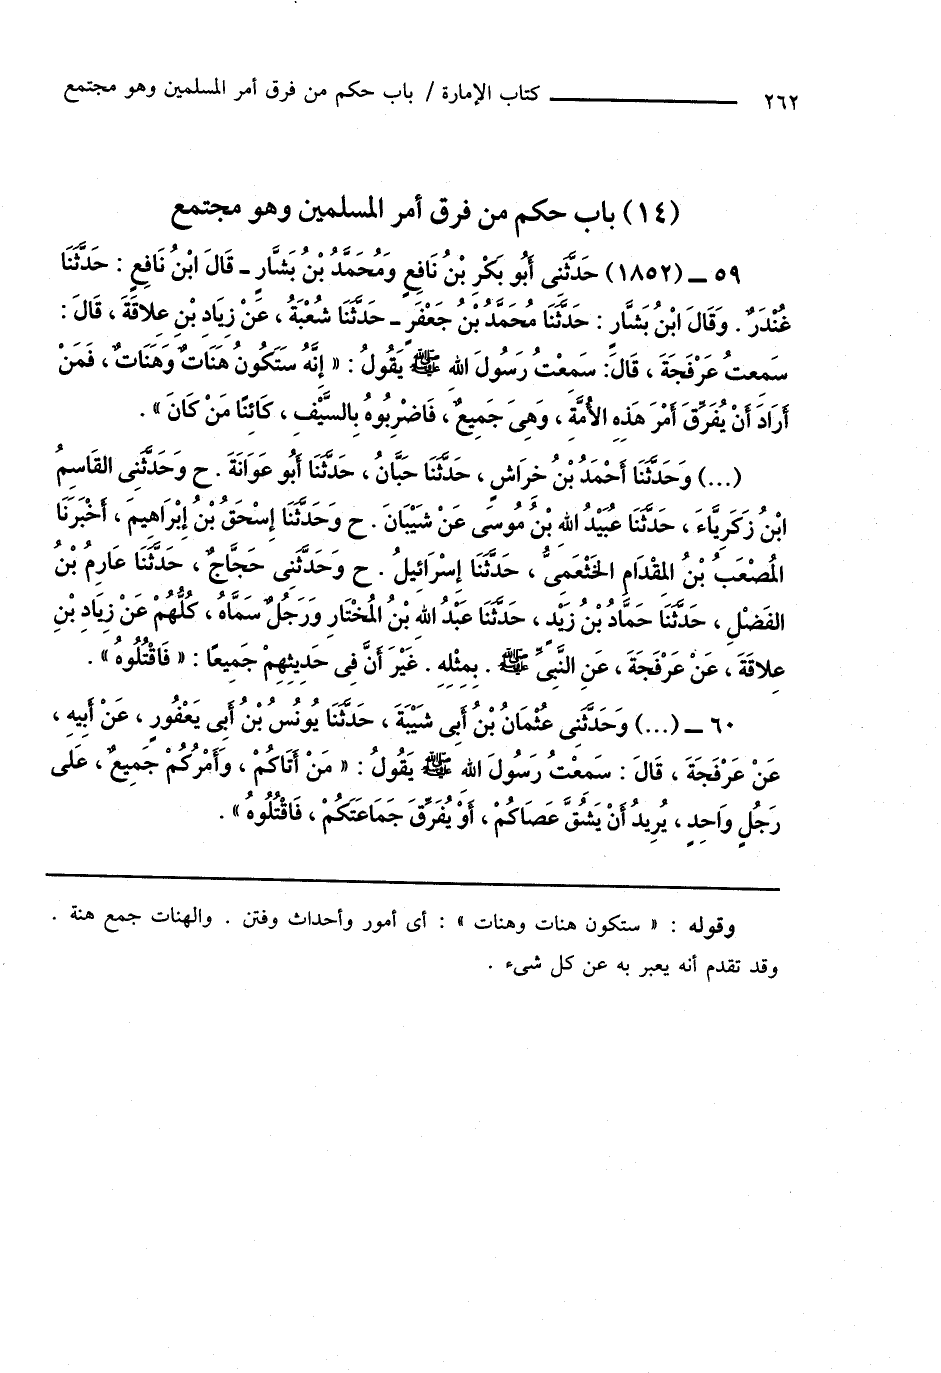 ٢٦٢ ــــــــــ كتاب الإمارة / باب حكم من فرق أمر المسلمين وهو مجتمع
(١٤) باب حكم من فرق أمر المسلمين وهو مجتمع
٥٩ ــ (١٨٥٢) حَدَّثَنِى أَبُو بَكْرِ بْنُ نَافِعٍ وَمُحَمَّدُ بْنُ بَشَّارٍ ـ قَالَ ابْنُ نَافِعٍ : حَدَّثَنَا
غُنْدَرٌ . وَقَالَ ابْنُ بَشَّارٍ : حَدَّثَنَا مُحَمَّدُ بْنُ جَعْفَرٍ ـ حَدَّثَنَا شُعْبَةُ ، عَنْ زِيَادِ بْنِ عِلاقَةَ ، قَالَ :
سَمِعتُ عَرْفَجَةَ ، قَالَ: سَمِعْتُ رَسُولَ اللهِ ﷺ يَقُولُ : « إِنَّهُ سَتَكُونُ هَنَاتٌ وَهَنَاتٌ ، فَمَنْ
أَرَادَ أَنْ يُفَرِّقَ أَمْرَ هَذِهِ الأُمَّةِ ، وَهِىَ جَمِيعٌ ، فَاضْرِبُوهُ بِالسَّيْفِ ، كَائِنًا مَنْ كَانَ » .
(...) وَحَدَّثَنَا أَحْمَدُ بْنُ خِرَاشٍ ، حَدَّثَنَا حَبَّانُ ، حَدَّثَنَا أَبُو عَوَانَةَ . ح وَحَدَّثَنِى القَاسِمُ
ابْنُ زَكَرِيَّاءَ ، حَدَّثَنَا عُبَيْدُ اللهِ بْنُ مُوسَى عَنْ شَيْبَانَ . ح وَحَدَّثَنَا إِسْحَقُ بْنُ إِبْرَاهِيمَ ، أَخْبَرَنَا
المُصْعَبُ بْنُ المِقْدَامِ الخَثْعَمِىُّ ، حَدَّثَنَا إِسْرَائِيلُ . ح وَحَدَّثَنِى حَجَّاجٌ ، حَدَّثَنَا عَارِمُ بْنُ
الفَضْلِ ، حَدَّثَنَا حَمَّادُ بْنُ زَيْدٍ ، حَدَّثَنَا عَبْدُ اللهِ بْنُ المُخْتَارِ وَرَجُلٌ سَمَّاهُ ، كُلُّهُمْ عَنْ زِيَادِ بْنِ
عِلاقَةَ ، عَنْ عَرْفَجَةَ ، عَنِ النَّبِىِّ ﷺ . بِمِثْلِهِ . غَيْرَ أَنَّ فِى حَدِيثِهِمْ جَمِيعًا : « فَاقْتُلُوهُ » .
٦٠ ــ (...) وَحَدَّثَنِى عُثْمَانُ بْنُ أَبِى شَيْبَةَ ، حَدَّثَنَا يُونُسُ بْنُ أَبِى يَعْفُورٍ ، عَنْ أَبِيهِ ،
عَنْ عَرْفَجَةَ ، قَالَ : سَمِعْتُ رَسُولَ اللهِ ﷺ يَقُولُ : « مَنْ أَتَاكُمْ ، وَأَمْرُكُمْ جَمِيعٌ ، عَلَى
رَجُلٍ وَاحِدٍ ، يُرِيدُ أَنْ يَشُقَّ عَصَاكُمْ ، أَوْ يُفَرِّقَ جَمَاعَتَكُمْ ، فَاقْتُلُوهُ » .
وقوله : « ستكون هنات وهنات » : أى أمور وأحداث وفتن . والهنات جمع هنة .
وقد تقدم أنه يعبر به عن كل شىء .